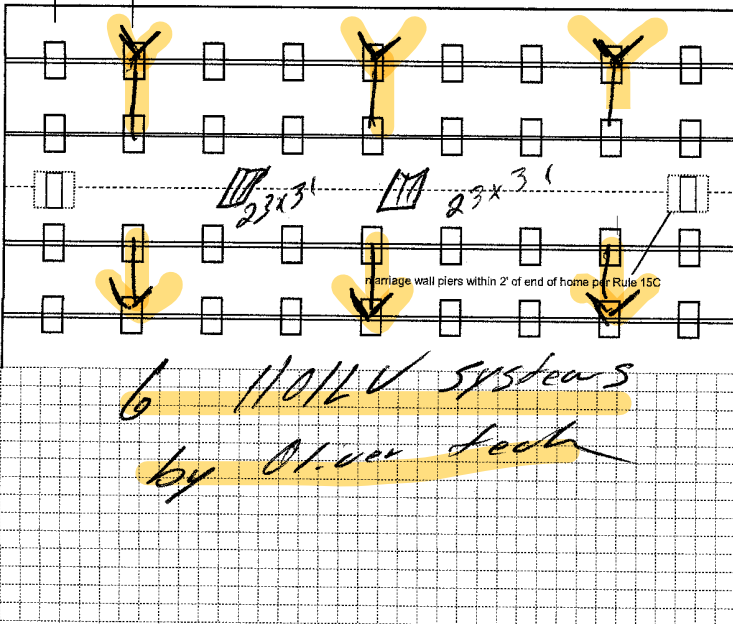 23x31
23x31
marriage wall piers within 2' of end of home per Rule 15C
6 1101LV systems
by Oliver tech